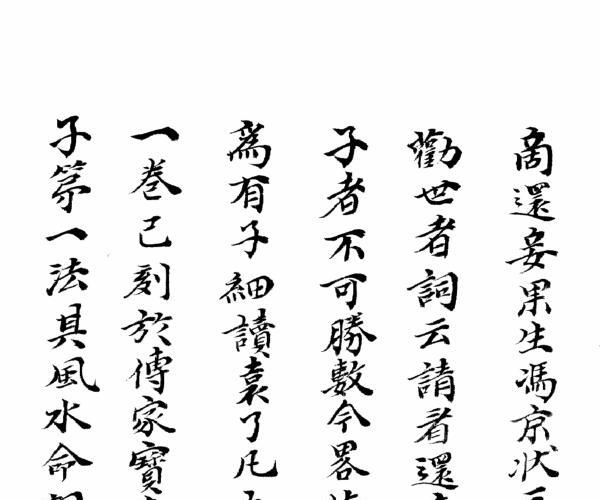 啇還妾果生馮京狀
勸世者詞云請看還
子者不可勝數今畧
為有子細讀袁了凡
一卷已刻於傳家寶
子第一法其風水命